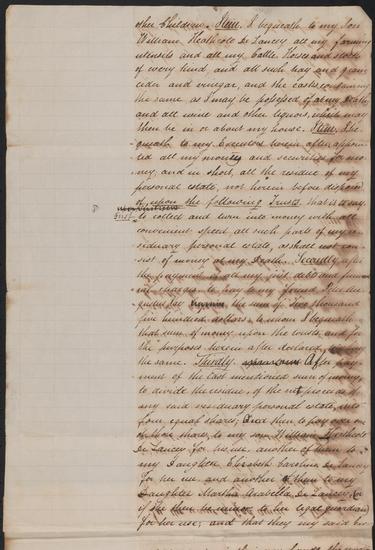 other Children. Item, I bequeath to my Son
William Heathcote De Lancey all my farming
utensils and all my Cattle Horses and stock
of every kind and all such hay and grain
cider and vinegar, and the casks containing
the same as I may be possessed of at my Death
and all wine and other liquors, which may
then be in or about my house. Item, I be
queath to my Executors herein after appoin
ted all my money and securities for mo
ny, and in short, all the residue of my
personal estate, not herein before dispos
of upon the following Trusts, that is to say
first to collect and turn into money with all
convenient speed all such parts of my re
siduary personal estate, as shall not con
sist of money at my Death. Secondly, after
the payment of all my just debts and fune
ral charges to pay to my
the sum of Two thousand
five hundred dollars, to whom I bequeath
that sum of money upon the trusts and for
the purposes herein after declared
the same. Thirdly After pay
ment of the last mentioned sum of money,
to divide the residue, of the net proceeds of
my said residuary personal estate, into
four equal shares, and then to pay over one
of these shares to my son William Heathcote
De Lancey for his use, another of them to
my Daughter Elizabeth Caroline De Lancey
for her use and another of them to my
Daughter Martha Arabella De Lancey (or
if she then be minor to her legal guardian)
for her use; and that they my said Ex